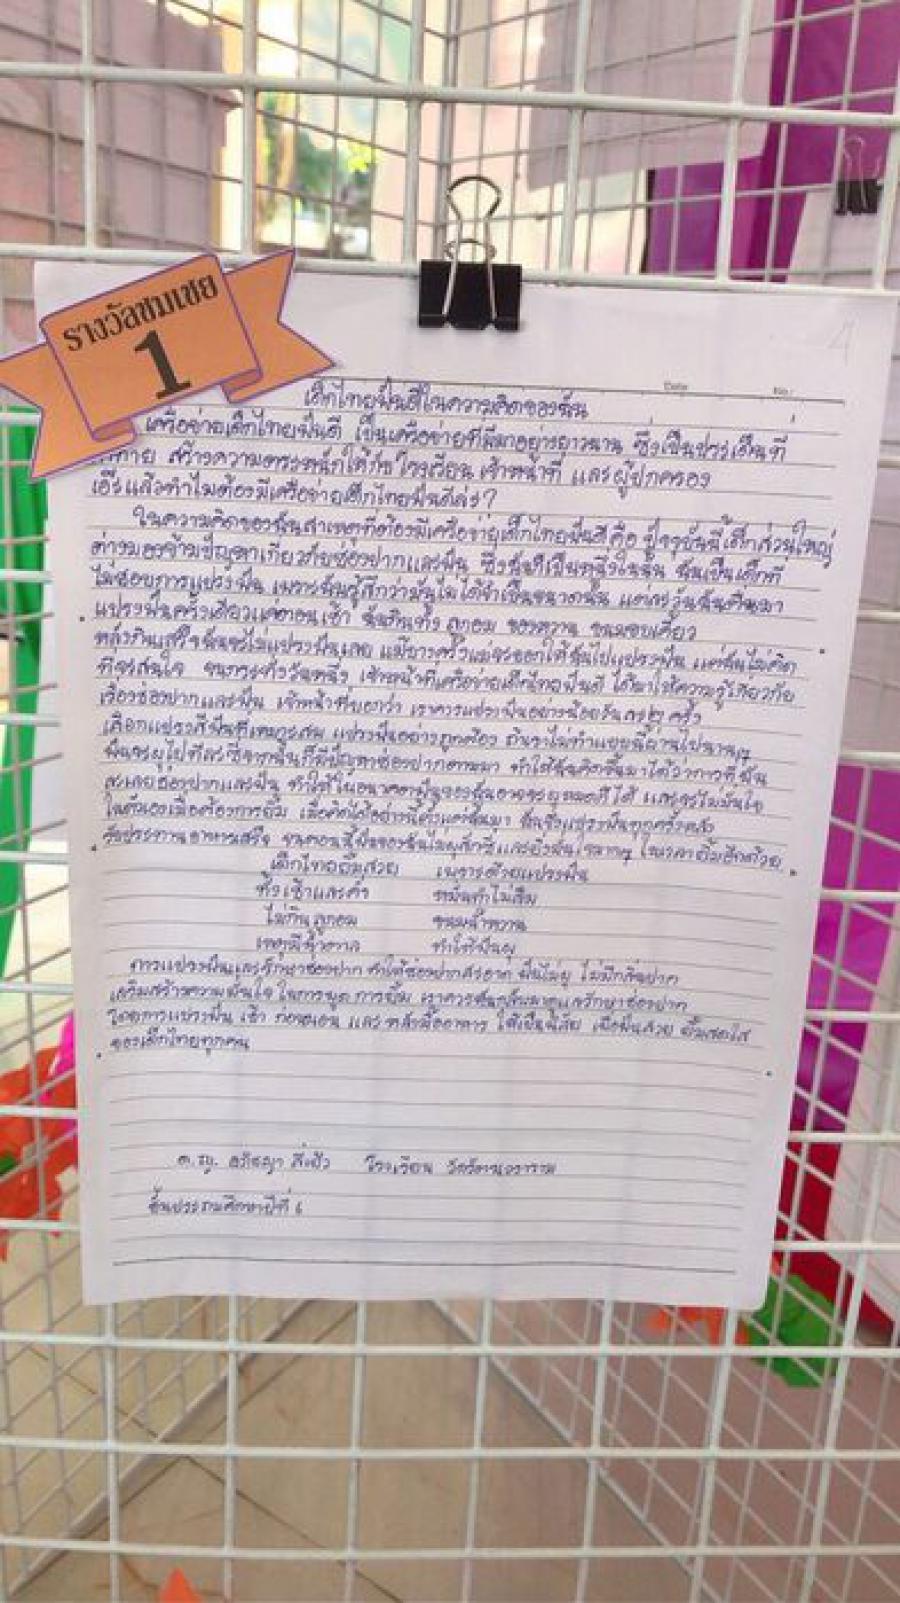 รางวัลชมเชย
1
Date
No.
เด็กไทยฟันดีในความคิดของฉัน
เครือข่ายเด็กไทยฟันดี เป็นเครือข่ายที่มีมาอย่างยาวนาน ซึ่งเป็นประเด็นที่
สร้างความตระหนักให้กับโรงเรียน เจ้าหน้าที่ และผู้ปกครอง
เอ๊ะแล้วทำไมต้องมีเครือข่ายเด็กไทยฟันดีล่ะ?
ในความคิดของฉันสาเหตุที่ต้องมีเครือข่ายเด็กไทยฟันดี คือ ปัจจุบันนี้เด็กส่วนใหญ่
ต่างมองข้ามปัญหาเกี่ยวกับช่องปากและฟัน ซึ่งฉันก็เป็นหนึ่งในนั้น ฉันเป็นเด็กที่
ไม่ชอบการแปรงฟัน เพราะฉันรู้สึกว่ามันไม่ได้จำเป็นขนาดนั้น แต่ละวันฉันตื่นมา
แปรงฟันครั้งเดียวแค่ตอนเช้า ฉันกินทั้ง ลูกอม ของหวาน ขนมขบเคี้ยว
หลังกินเสร็จฉันจะไม่แปรงฟันเลย แม้บางครั้งแม่จะบอกให้ฉันไปแปรงฟัน แต่ฉันไม่คิด
ที่จะสนใจ จนกระทั่งวันหนึ่ง เจ้าหน้าที่เครือข่ายเด็กไทยฟันดี ได้มาให้ความรู้เกี่ยวกับ
เรื่องช่องปากและฟัน เจ้าหน้าที่บอกว่า เราควรแปรงฟันอย่างน้อยวันละ๒ ครั้ง
เลือกแปรงสีฟันที่เหมาะสม แปรงฟันอย่างถูกต้อง ถ้าเราไม่ทำแบบนี้ผ่านไปนานๆ
ฟันจะผุไปทีละซี่จากนั้นก็มีปัญหาช่องปากตามมา ทำให้ฉันคิดขึ้นมาได้ว่าการที่ฉัน
ละเลยช่องปากและฟัน ทำให้ในอนาคตฟันของฉันอาจจะผุหมดก็ได้ และจะไม่มั่นใจ
ในตัวเองเมื่อต้องการยิ้ม เมื่อคิดได้อย่างนี้ตั้งแต่นั้นมา ฉันจึงแปรงฟันทุกครั้งหลัง
รับประทานอาหารเสร็จ จนตอนนี้ฟันของฉันไม่ผุสักซี่ และยังมั่นใจมากๆ ในเวลายิ้มอีกด้วย
เด็กไทยยิ้มสวย เพราะด้วยแปรงฟัน
ทั้งเช้าและค่ำ หมั่นทำไม่ลืม
ไม่กินลูกอม ขนมน้ำหวาน
เหตุมีน้ำตาล ทำให้ฟันผุ
การแปรงฟันและรักษาช่องปาก ทำให้ช่องปากสะอาด ฟันไม่ผุ ไม่มีกลิ่นปาก
เสริมสร้างความมั่นใจ ในการพูด การยิ้ม เราควรหันกลับมาดูแลรักษาช่องปาก
โดยการแปรงฟัน เช้า ก่อนนอน และ หลังมื้ออาหาร ให้เป็นนิสัย เพื่อฟันสวย ยิ้มสดใส
ของเด็กไทยทุกคน
ด.ญ. โรงเรียน
ชั้นประถมศึกษาปีที่ 6